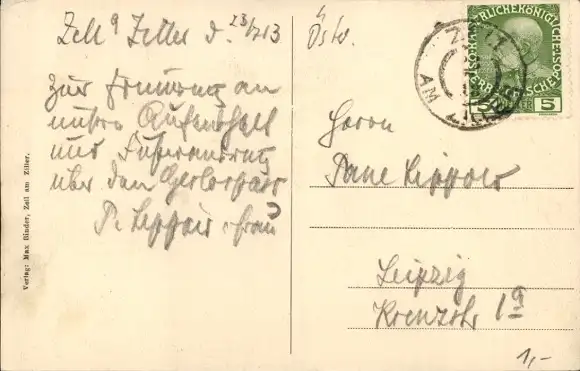 Zell a Ziller d. 23/7 13
Zur Erinnerung an
unsern Aufenthalt
und Fusswanderung
über den Gerlospass
P. Lippold u Frau
Verlag: Max Binder, Zell am Ziller.
Östr.
KAISERLICHE KÖNIGLICHE ÖSTERREICHISCHE POST
5 5
ZELL AM ZILLER
Herrn
Lippold
Leipzig
Kreuzstr 1a
1,-